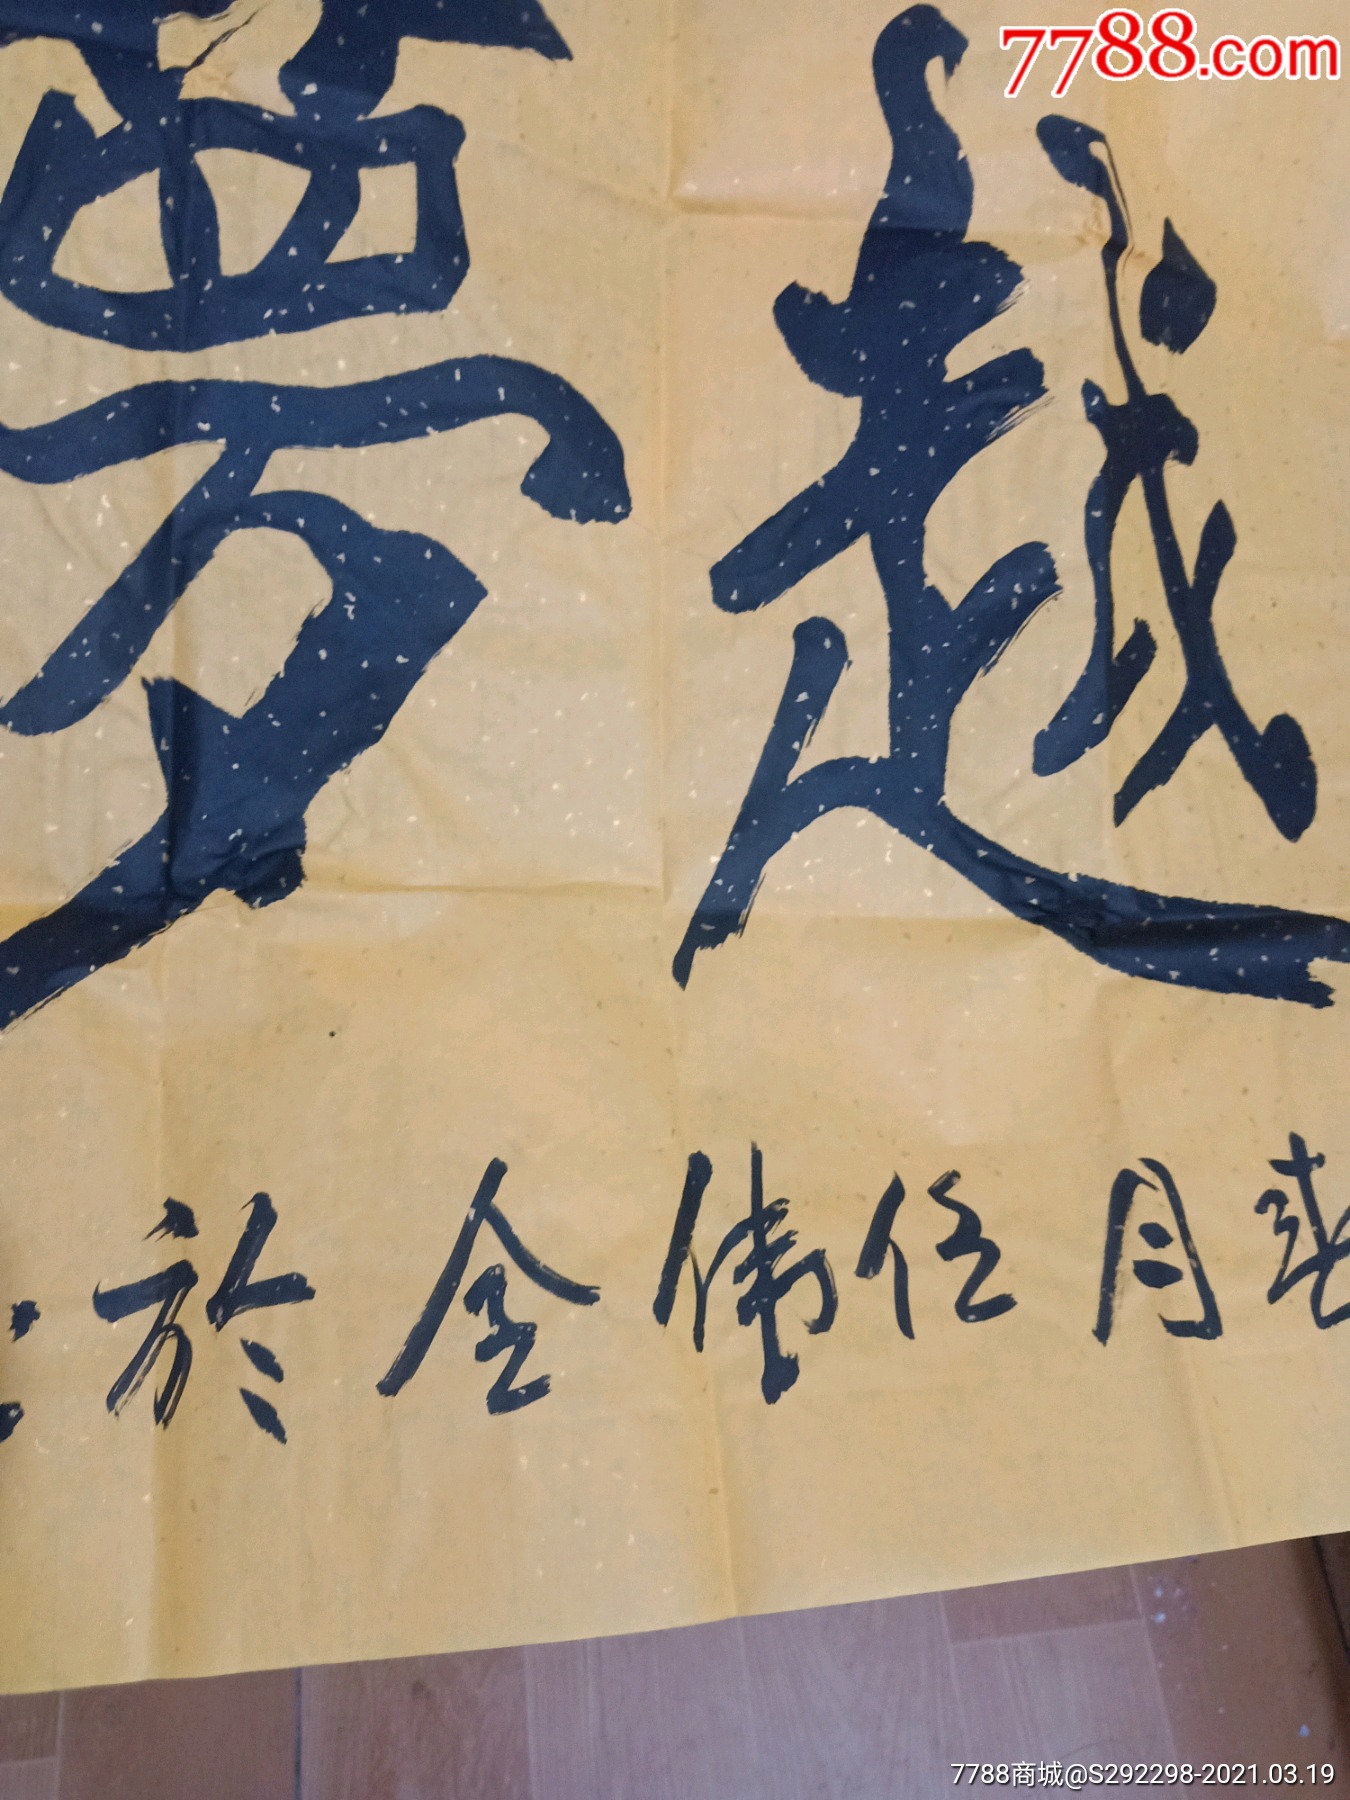 7788.com
越夢
月任偉全於
7788商城@S292298-2021.03.19